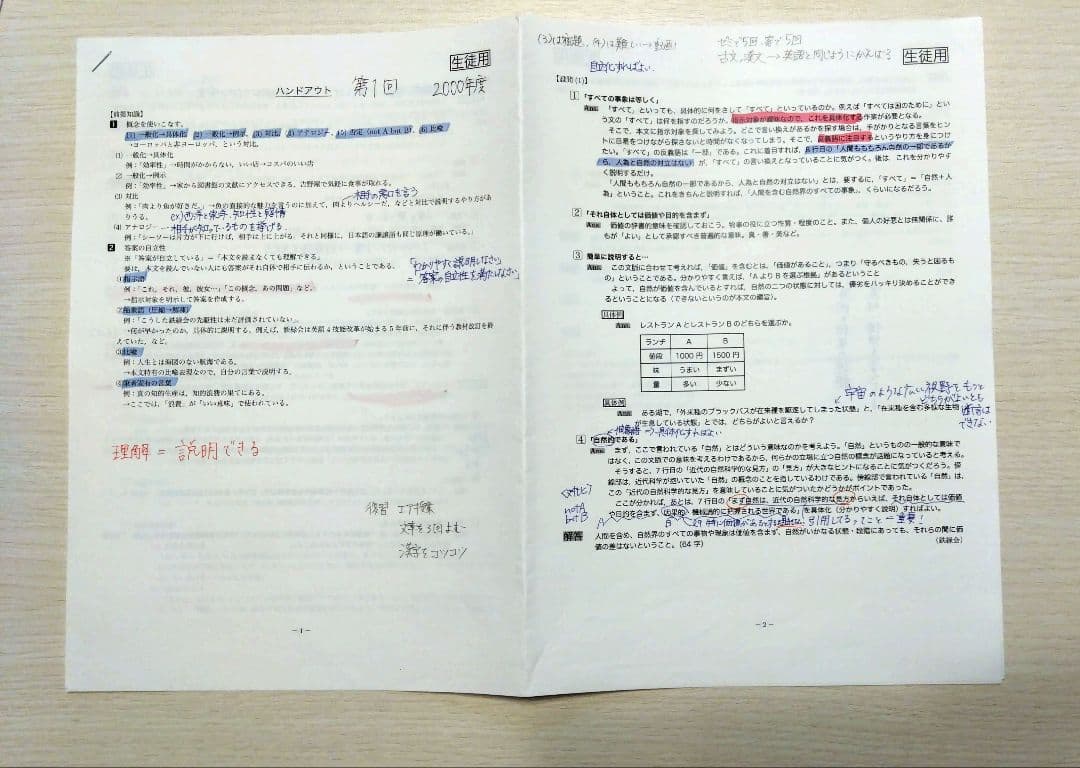 生徒用
ハンドアウト 第1回 2000年度
【前提知識】
1 概念を使いこなす。
(1) 一般化→具体化 (2) 一般化→例示 (3) 対比 (4) アナロジー (5) 否定 (not A but B) (6) 比喩
→ヨーロッパと非ヨーロッパ、という対比。
(1) 一般化→具体化
例：「効率性」→時間がかからない、いい店→コスパのいい店
(2) 一般化→例示
例：「効率性」→家から図書館の文献にアクセスできる、吉野屋で気軽に食事が取れる。
(3) 対比
例：「肉より魚が好きだ。」→魚の直接的な魅力を言うのに加えて、肉よりヘルシーだ、などと対比で説明するやり方が
ありうる。 ex)西洋と東洋、知性と感情
(4) アナロジー 相手が知っているものを挙げる
例：「シーソーは片方が下に行けば、相手は上に上がる。それと同様に、日本語の謙譲語も同じ原理が働いている。」
2 答案の自立性
※「答案が自立している」＝「本文を読まなくても理解できる。」
要は、本文を読んでいない人にも答案がそれ自体で相手に伝わるか、ということである。
「わかりやすく説明しなさい」
=「答案の自立性を満たしなさい」
①指示語
例：「これ、それ、他、彼女…」「この概念、あの問題」など。
→指示対象を明示して答案を作成する。
例：「こうした鉄緑会の先駆性は未だ評価されていない。」
→何が早かったのか、具体的に説明する。例えば、鉄緑会は英語4技能改革が始まる5年前に、それに伴う教材改訂を終
えていた、など。
③比喩
例：人生とは海図のない航海である。
→本文特有の比喩表現なので、自分の言葉で説明する。
④筆者固有の言葉
例：真の知的生産は、知的浪費の果てにある。
→ここでは、「浪費」が「いい意味」で使われている。
理解 = 説明できる
復習 エア授業
文章を3回よむ
漢字をコツコツ
－1－
自立化すればよい
古文、漢文 → 英語と同じようにかんがえる
生徒用
【設問(1)】
1 「すべての事象は等しく」
Ans 「すべて」といっても、具体的に何をさして「すべて」といっているのか。例えば「すべては国のために」とい
う文の「すべて」は何を指すのだろうか。指示対象が曖昧なので、これを具体化する作業が必要となる。
そこで、本文に指示対象を探してみよう。どこで言い換えがあるかを探す場合は、手がかりとなる言葉をヒン
トに目星をつけながら探さないと時間がなくなってしまう。そこで、反義語に注目するというやり方を身につけ
たい。「すべて」の反義語は「一部」である。これに着目すれば、8行目の「人間ももちろん自然の一部であるか
ら、人為と自然の対立はない」が、「すべて」の言い換えとなっていることに気がつく。後は、これを分かりやす
く説明するだけ。
「人間ももちろん自然の一部であるから、人為と自然の対立はない」とは、要するに、「すべて」＝「自然＋人
為」ということ。これをきちんと説明すれば、「人間を含む自然界のすべての事象」、くらいになるだろう。
2 「それ自体としては価値や目的を含まず」
Ans 価値の辞書的意味を確認しておこう。物事の役に立つ性質・程度のこと。また、個人の好悪とは無関係に、誰
もが「よい」として承認すべき普遍的な意味。真・善・美など。
3 簡単に説明すると…
Ans この文脈に合わせて考えれば、「価値」を含むとは、「価値があること」、つまり「守るべきもの、失うと困るも
の」ということである。分かりやすく言えば、「AよりBを選ぶ根拠」があるということ
よって、自然が価値を含んでいるとすれば、自然の二つの状態に対しては、優劣をハッキリ決めることができ
るということになる（できないというのが本文の趣旨）。
具体例
Ans レストランAとレストランBのどちらを選ぶか。
ランチ A B
値段 1000円 1500円
味 うまい まずい
量 多い 少ない
宇宙のような広い視野をもつと
どちらがよいとも
断言は
できない
具体例
Ans ある湖で、「外来種のブラックバスが在来種を駆逐してしまった状態」と、「在来種を含む多様な生物
が生息している状態」とでは、どちらがよいと言えるか？
抽象語→具体化すればよい
4 「自然的である」
Ans まず、ここで言われている「自然」とはどういう意味なのかを考えよう。「自然」というものの一般的な意味で
はなく、この文脈での意味を考えるわけであるから、何らかの立場に立つ自然の概念が話題になっていると考える。
そうすると、7行目の「近代の自然科学的な見方」の「見方」が大きなヒントになることに気がつくだろう。傍
線部は、近代科学が抱いていた「自然」の概念のことを指しているわけである。傍線部で言われている「自然」は、
この「近代の自然科学的な見方」を意味していることに気づいたかどうかがポイントであった。
ここが分かれば、あとは、7行目の「まず自然は、近代の自然科学的な見方からいえば、それ自体としては価値
や目的を含まず、因果的・機械論的に把握される世界である」を具体化（分かりやすく説明）すればよい。
not A
but B
解答 人間を含め、自然界のすべての事物や現象は価値を含まず、自然がいかなる状態・段階にあっても、それらの間に価
値の差はないということ。(64字)
（鉄緑会）
－2－